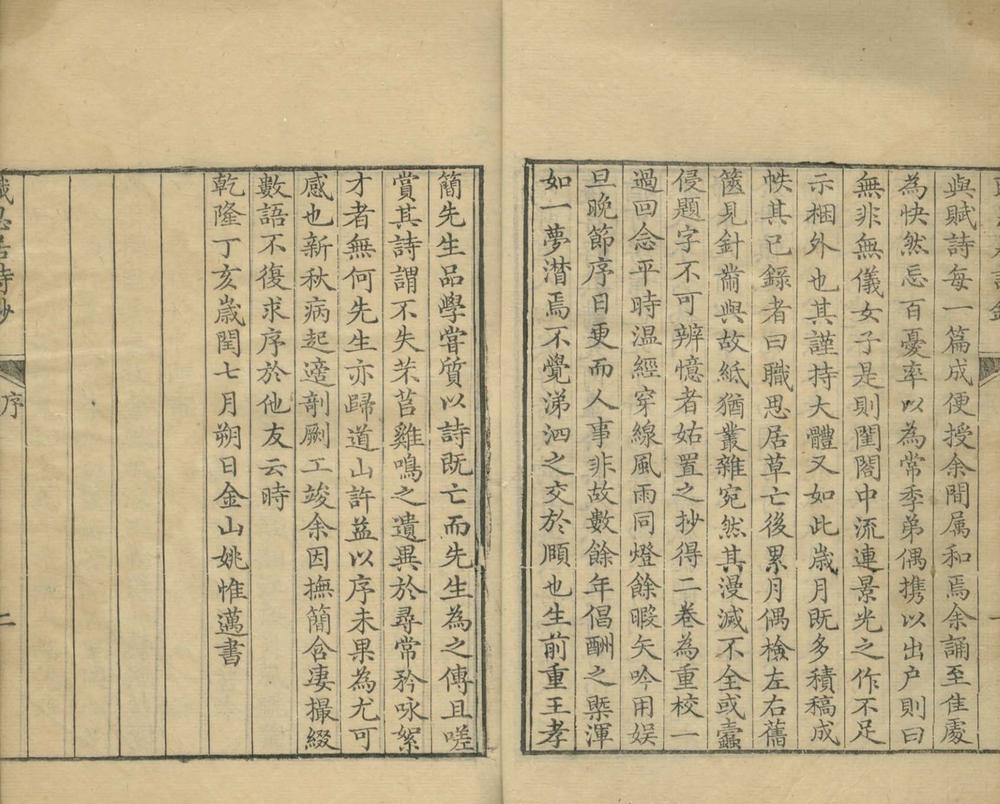 與賦詩每一篇成便授余閒属和焉余誦至佳處
為快然忘百憂率以為常季弟偶携以出户則曰
無非無儀女子是則閨閤中流連景光之作不足
示梱外也其謹持大體又如此歳月既多積稿成
帙其已錄者曰職思居草亡後累月偶檢左右舊
篋見針黹與故紙猶叢雜宛然其漫滅不全或蠹
侵題字不可辨憶者姑置之抄得二卷為重校一
過回念平時温經穿線風雨同燈餘暇矢吟用娱
旦晩節序日更而人事非故數餘年倡酬之槩渾
如一夢潸焉不覺涕泗之交於頥也生前重王孝
簡先生品學嘗質以詩既亡而先生為之傳且嗟
賞其詩謂不失芣苢雞鳴之遺異於尋常矜咏絮
才者無何先生亦歸道山許益以序未果為尤可
感也新秋病起適剞劂工竣余因撫簡含凄撮綴
數語不復求序於他友云時
乾隆丁亥歳閏七月朔日金山姚惟邁書
職思居詩鈔
序
二